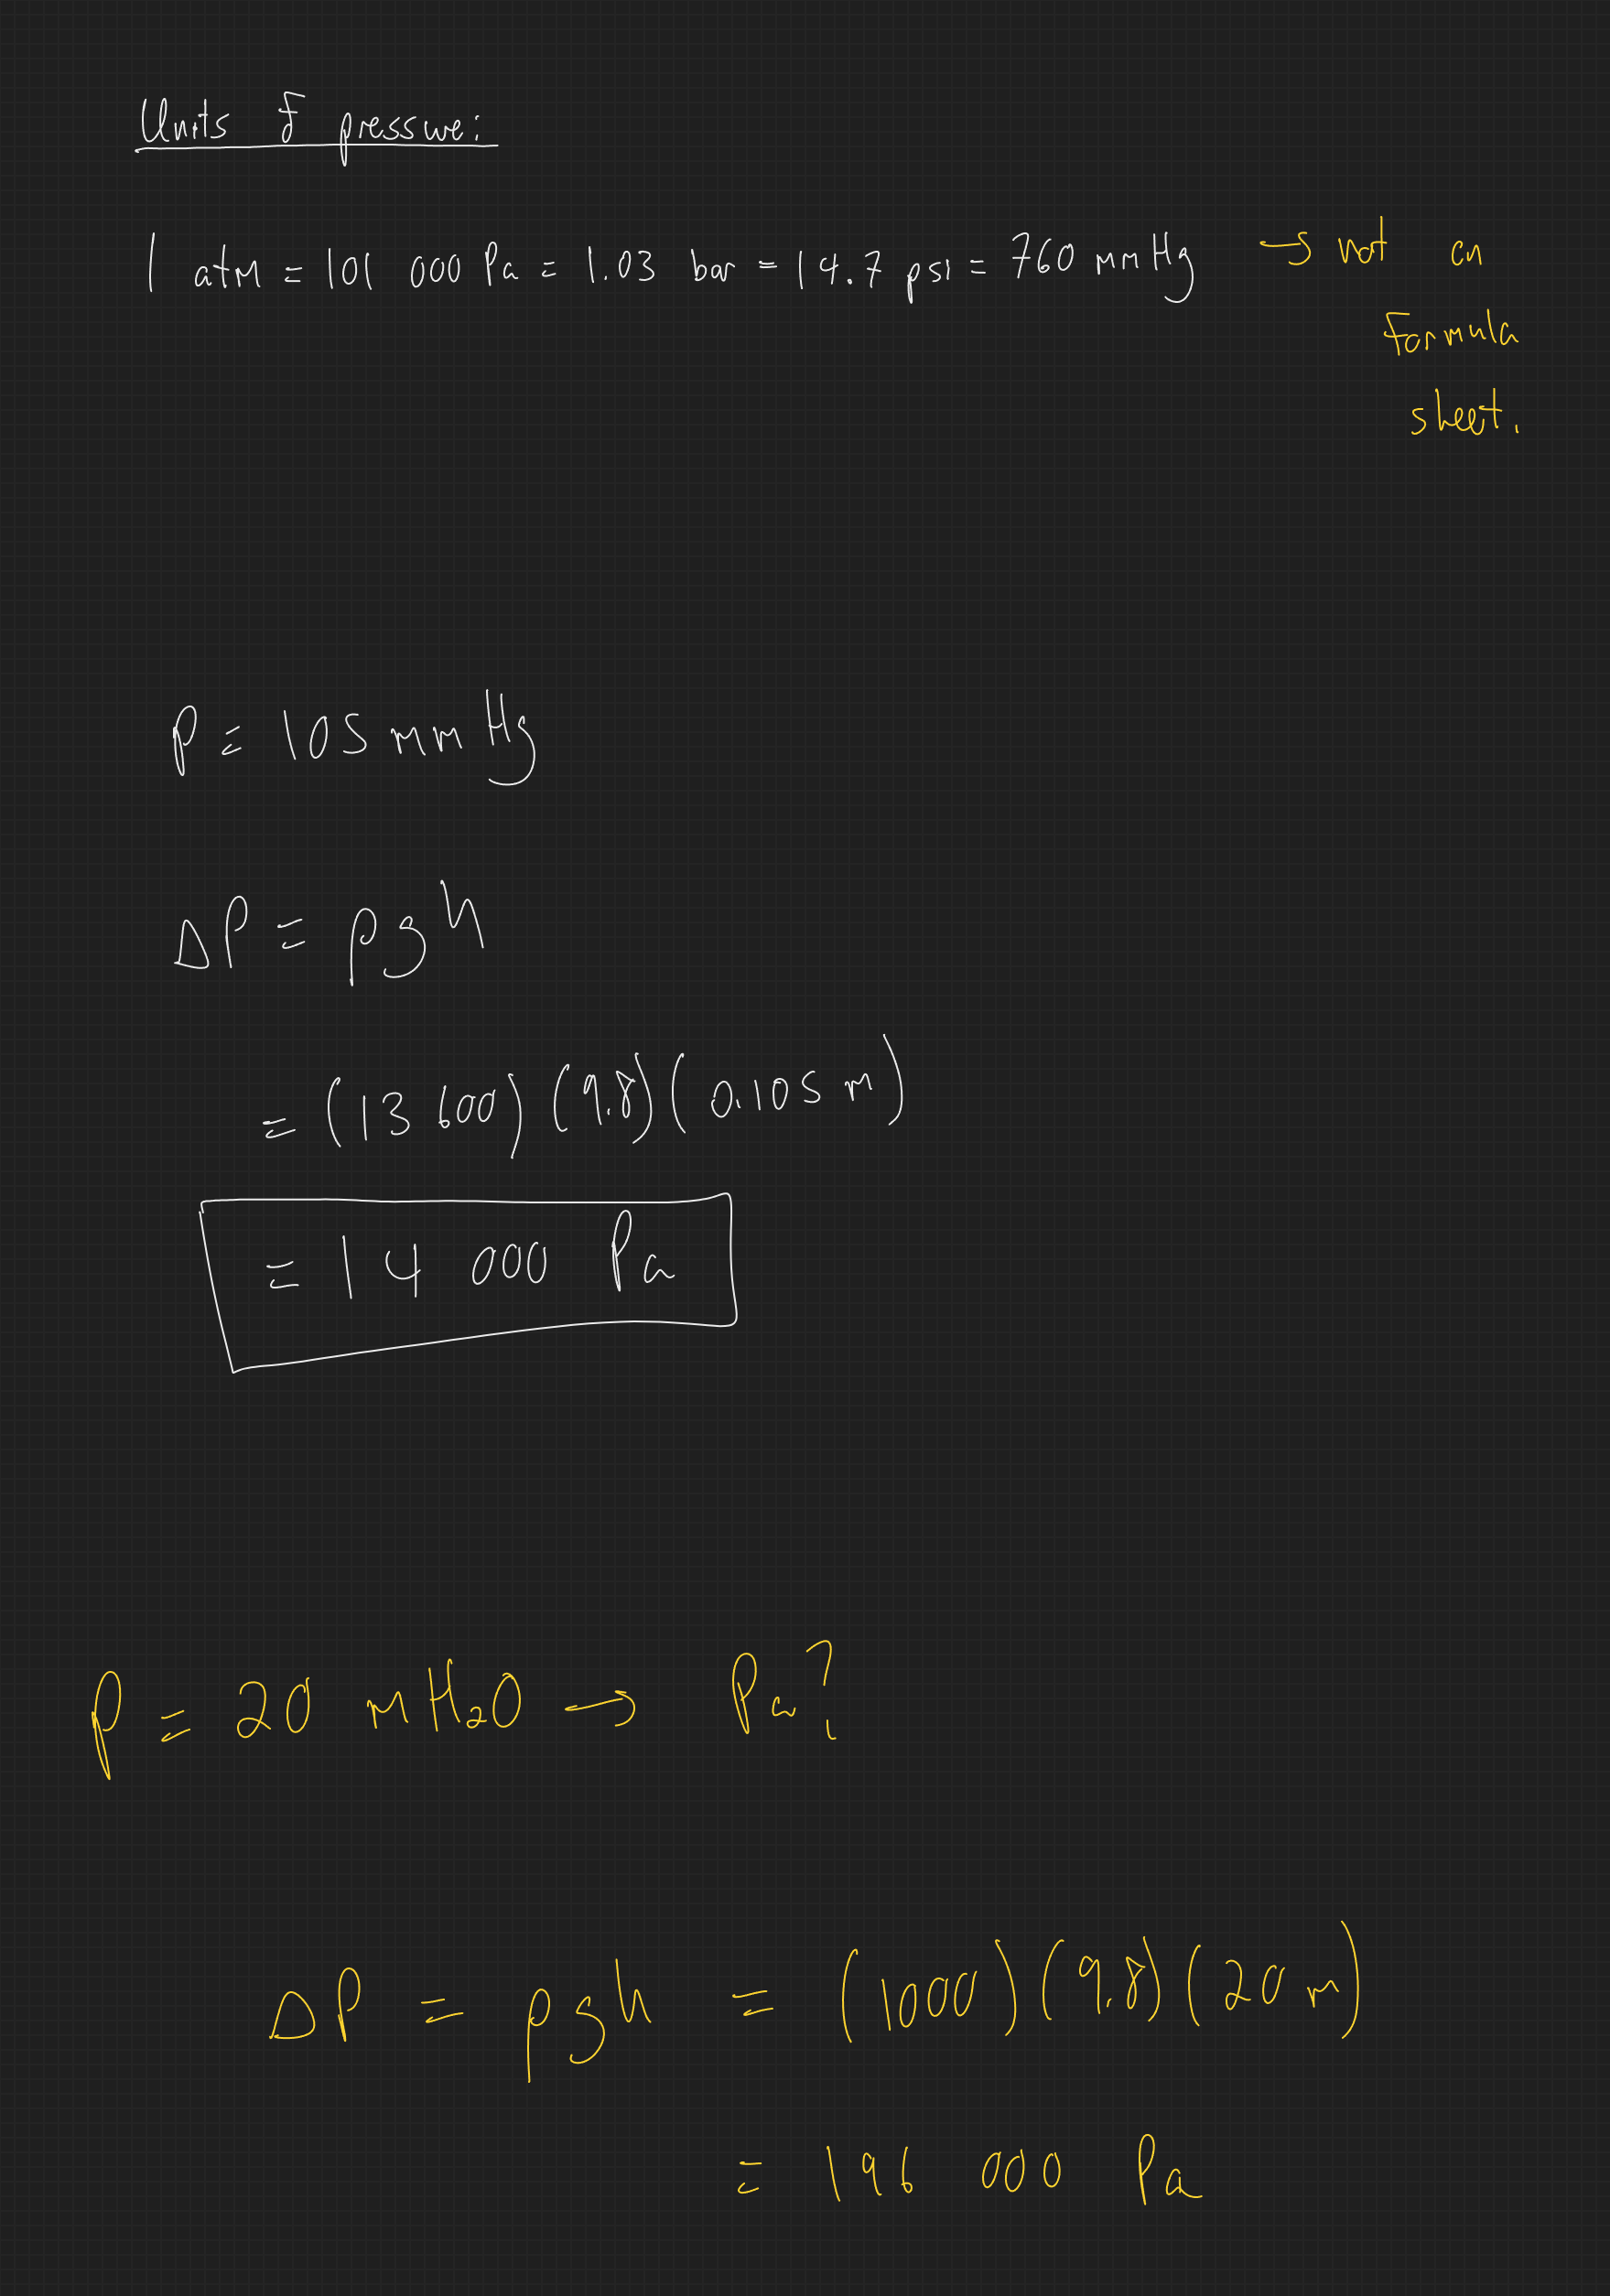 Units of pressure:
1 atm = 101 000 Pa = 1.03 bar = 14.7 psi = 760 mmHg → not on
formula
sheet.
P = 105 mmHg
ΔP = ρgh
= (13 600)(9.8)(0.105 m)
= 14 000 Pa
P = 20 mH₂O → Pa?
ΔP = ρgh = (1000)(9.8)(20 m)
= 196 000 Pa